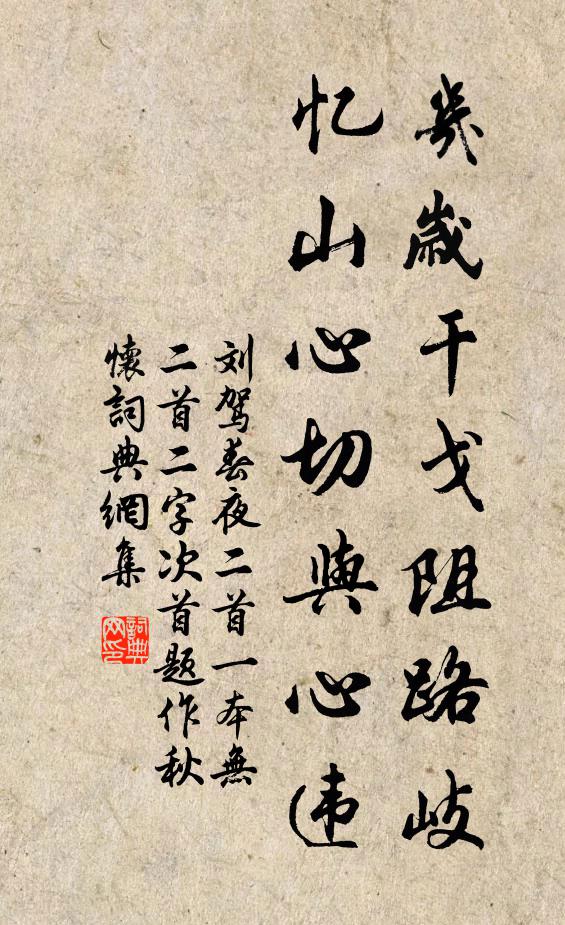 幾歲干戈阻路岐
忆山心切與心违
刘駕春夜二首一本無
二首二字次首题作秋
懷詞典網集
詞典网印